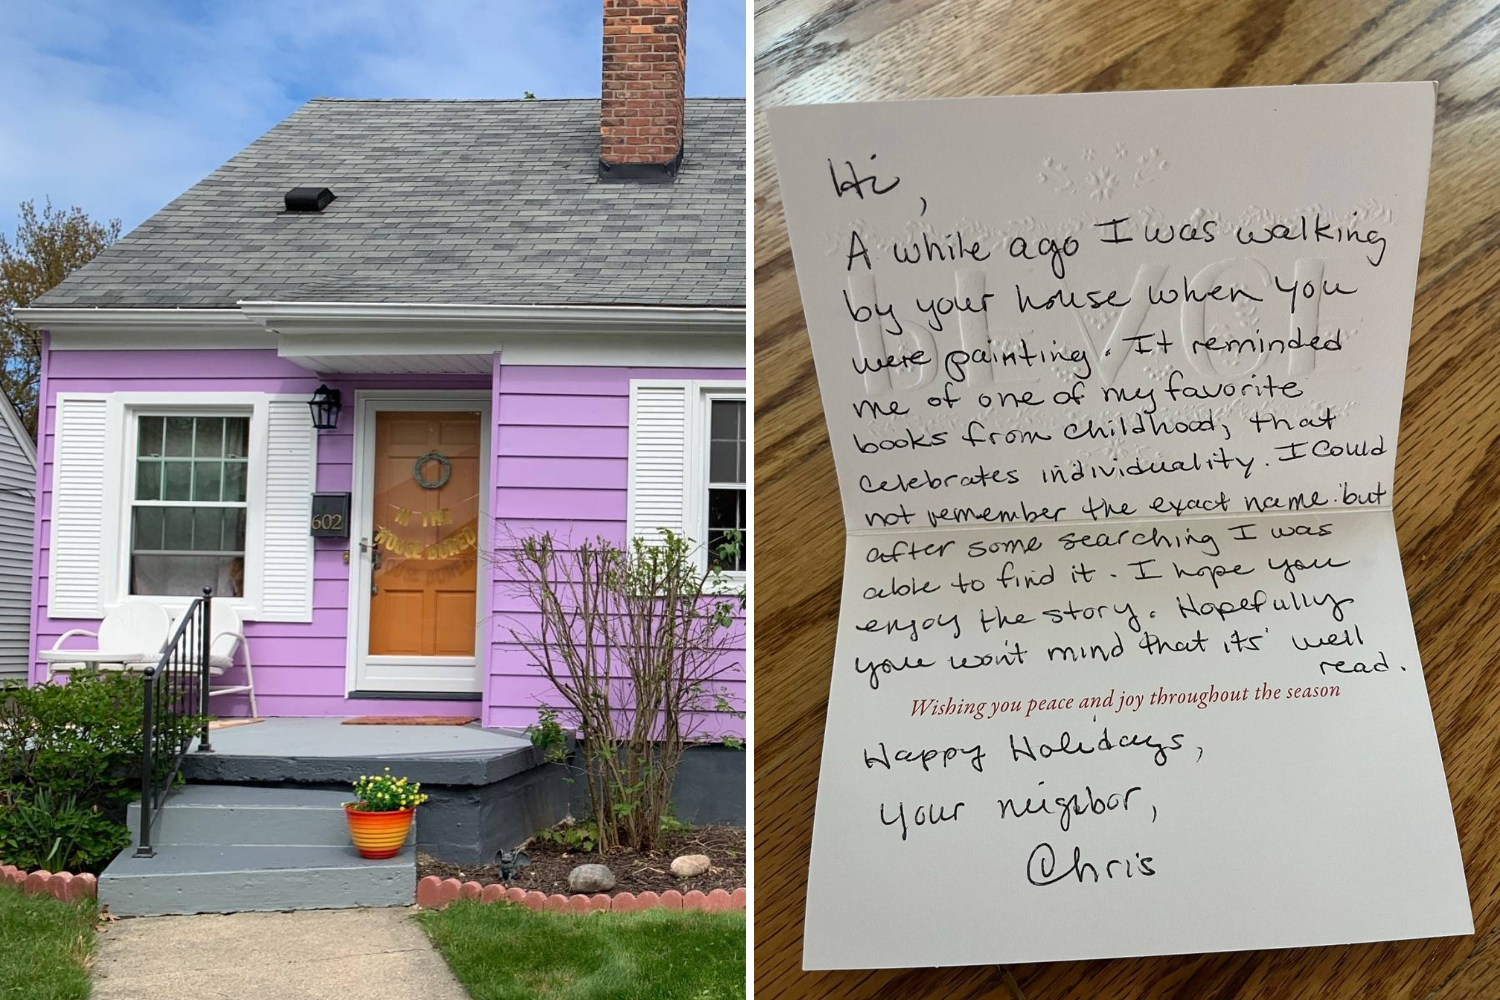 602
IN THE
Hi,
A while ago I was walking
by your house when you
were painting. It reminded
me of one of my favorite
books from childhood, that
celebrates individuality. I could
not remember the exact name but
after some searching I was
able to find it. I hope you
enjoy the story. Hopefully
you won't mind that its' well
read.
Wishing you peace and joy throughout the season
Happy Holidays,
your neighbor,
Chris